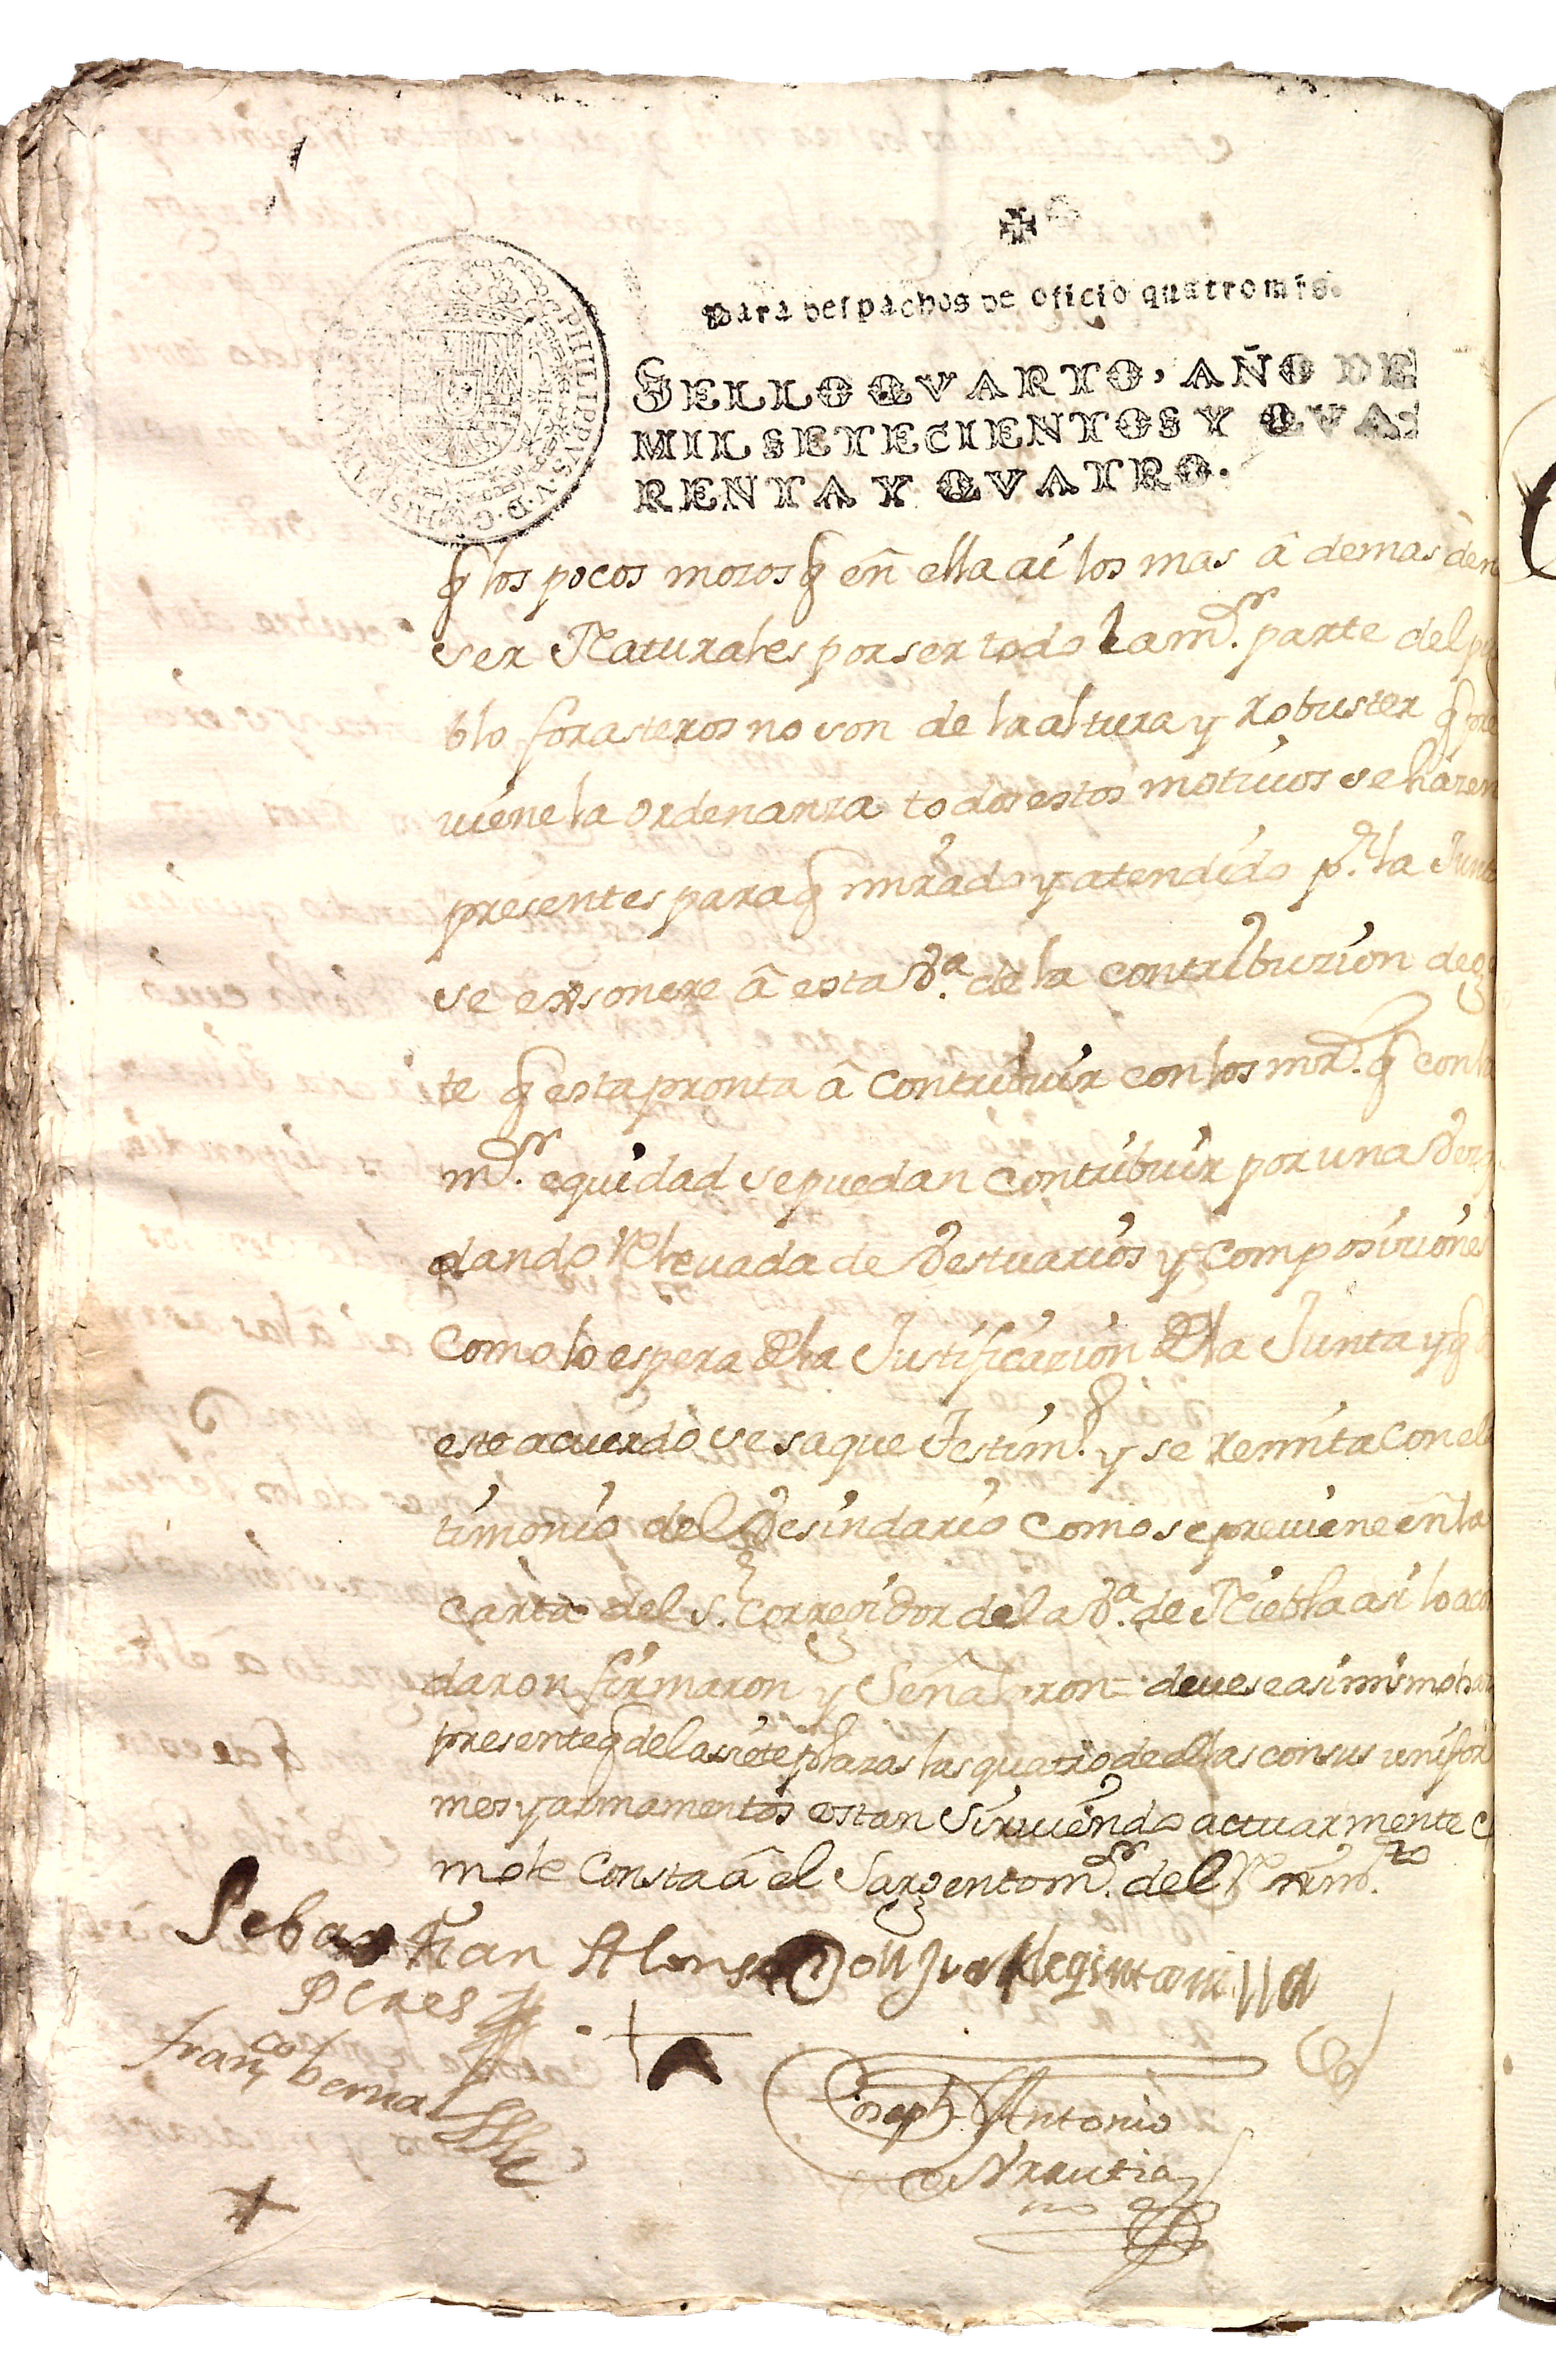 Para despachos de oficio quatro mrs.
SELLO QVARTO, AÑO DE
MIL SETECIENTOS Y QVA-
RENTA Y QVATRO.
PHILIPPVS V D G HISPA
q los pocos mozos q eñ ella ai los mas â demas de no
ser Naturales por ser todo la mr. parte del pu
blo forasteros no son de la altura y Robustez q pre
uiene la ordenanza todos estos motiuos se hazen
presentes para q mirado y atendido pr. la Junta
se exsonere â esta Va. de la contribuzion de ge
te q esta pronta â contribuir con los mrs. q con la
mr. equidad se puedan contribuir por una Vez
dando Releuada de Vestuarios y composiziones
como lo espera de la Justificazion de la Junta y q
este acuerdo se saque Testimo. y se Remita con el
timonio del Vesindario como se preuiene eñ la
carta del sr. Corregidor de la Va. de Niebla asi lo acor
daron firmaron y Señalaron = deuese asimismo hazer
presente q de las siete plazas las quatro de ellas con sus unifor
mes y armamentos estan siruiendo actuarmente co
mo le Consta â el Sargento mr. del Reximto.
Sebastian Alonso
Peres
Don Juan de Quintanilla
Franco bernal
Joseph Antonio
de Vrrutia